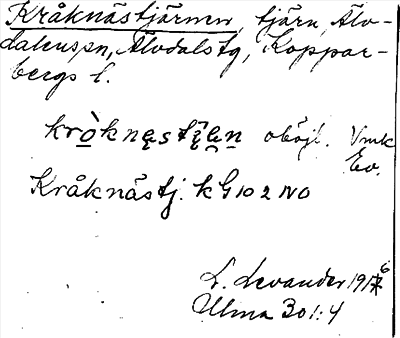 Kråknästjärnen, tjärn, Älv-
dalens sn, Älvdals tg, Koppar-
bergs l.
krò̠knęstįę̂n oböjl. Vmk
Ev.
Kråknästj. kG 10 2 NO
L. Levander 1916
Ulma 301:4